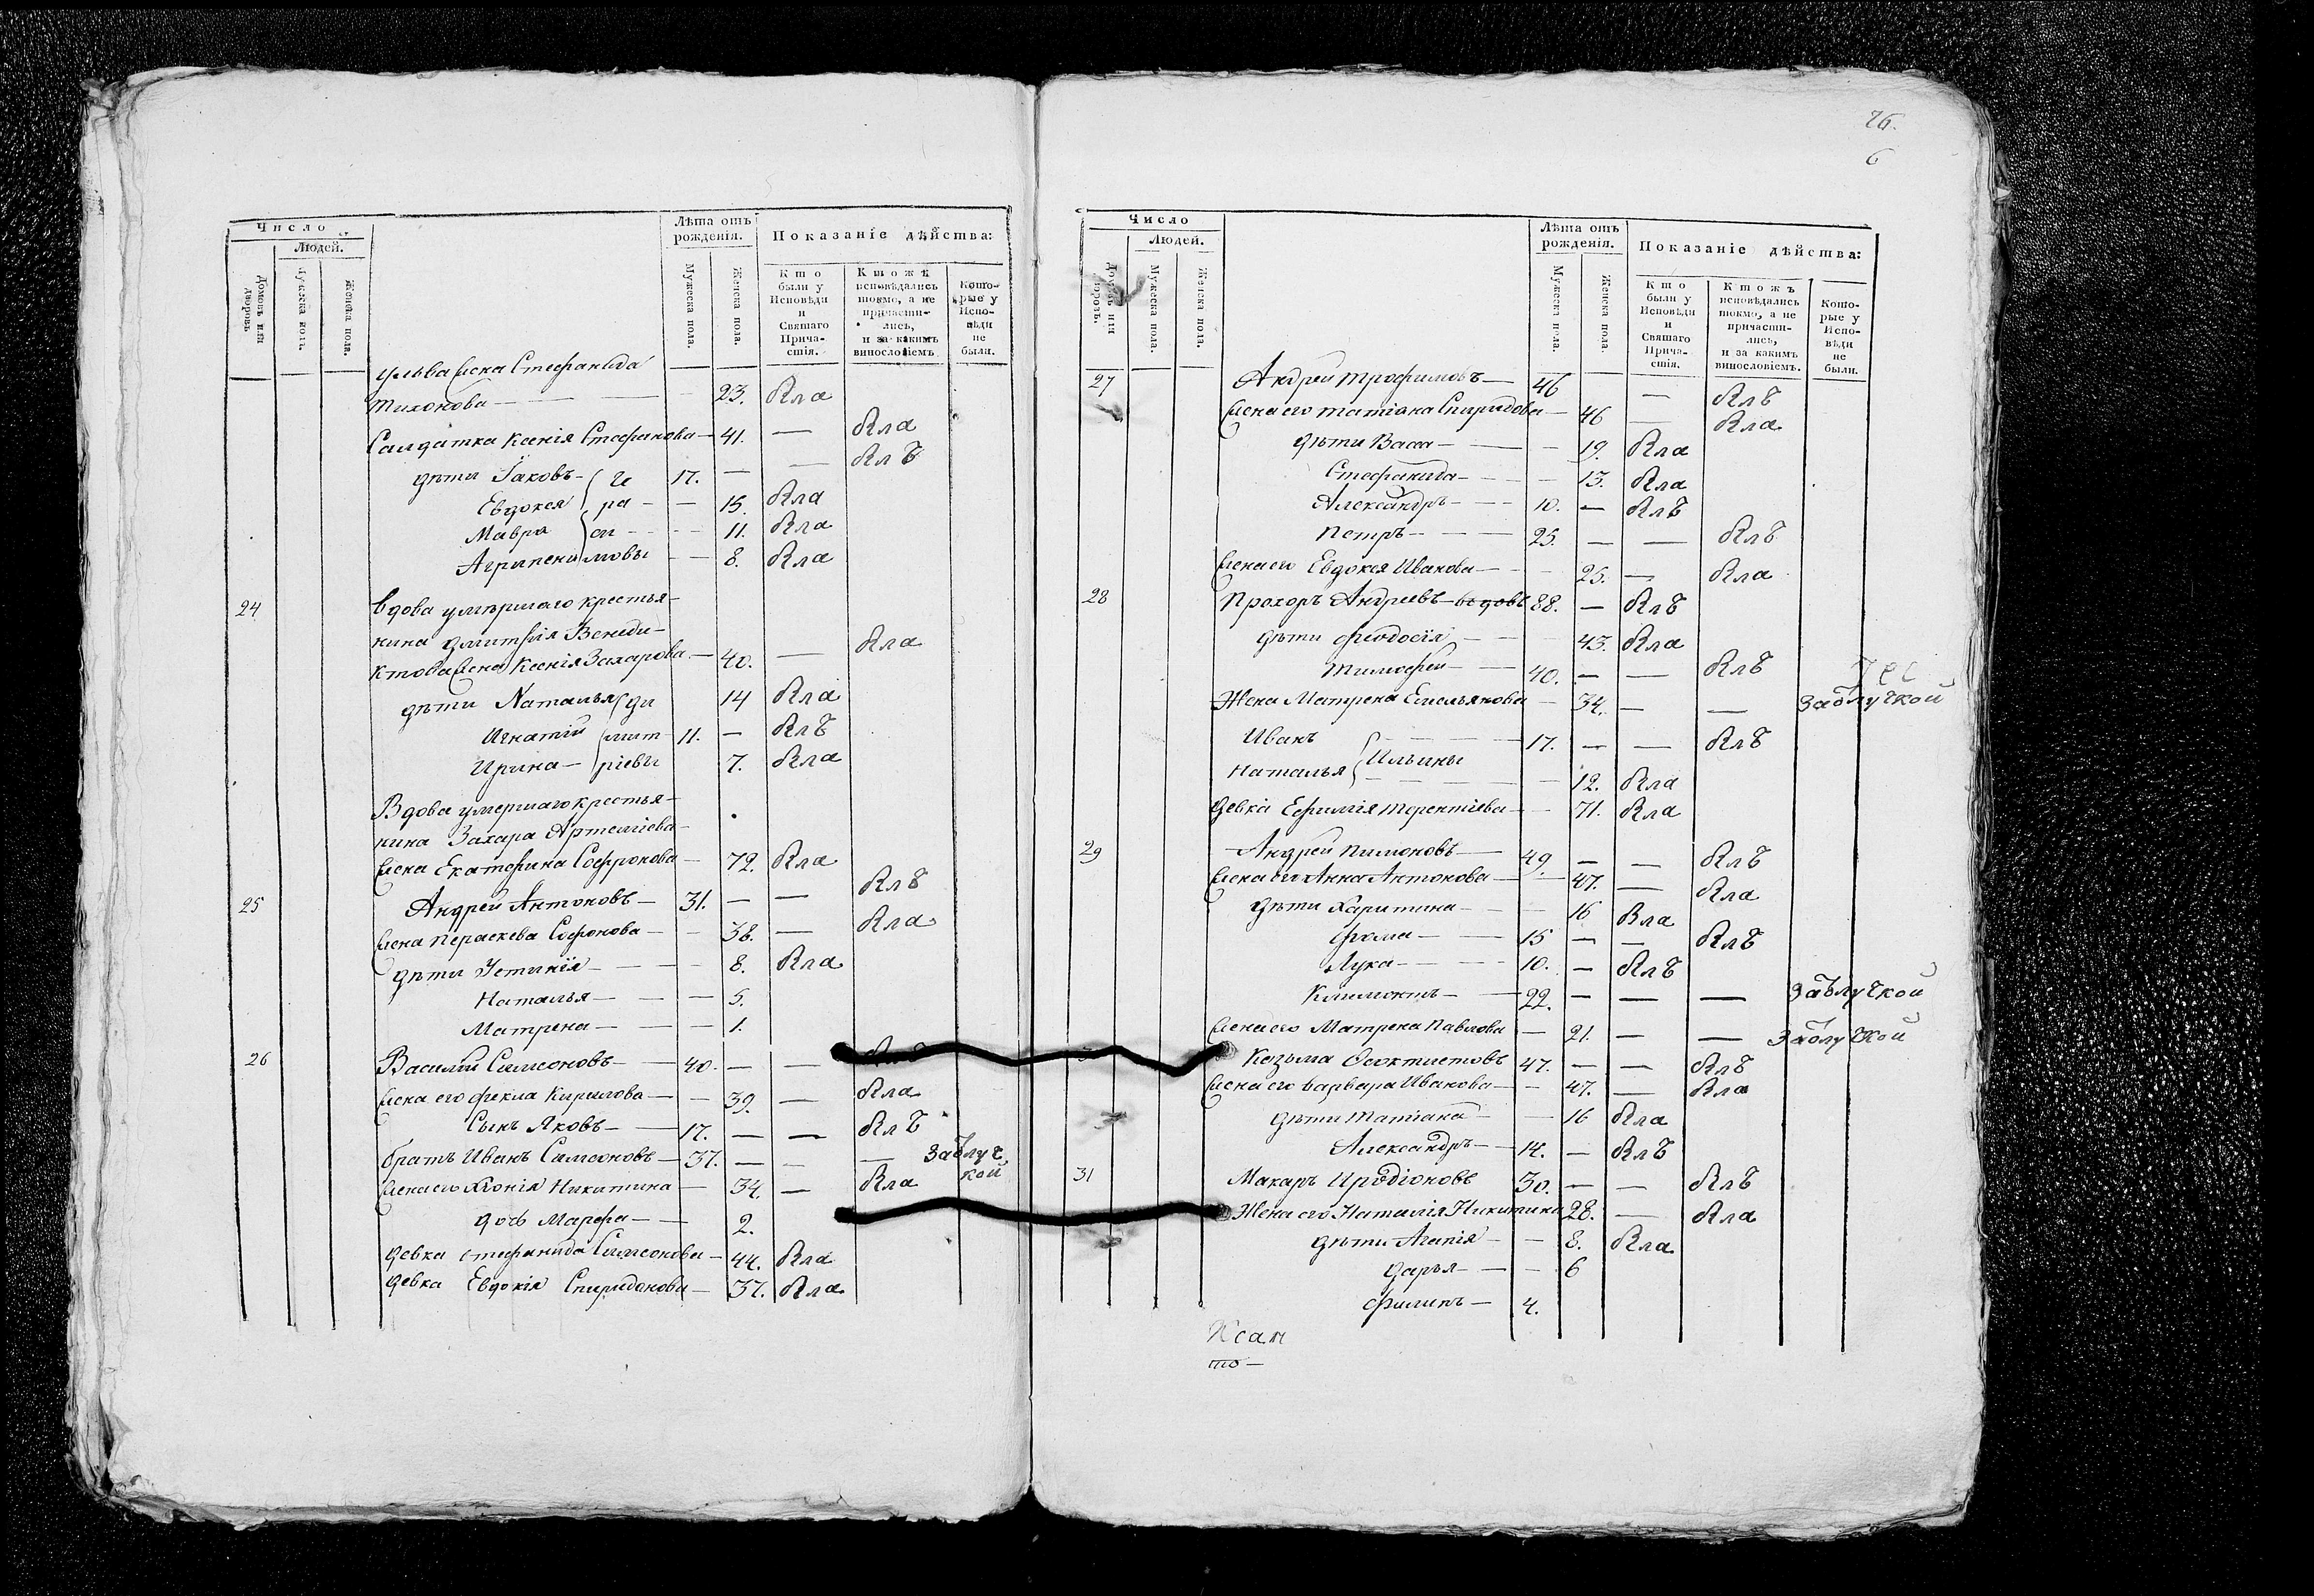 Число
Людей.
Домовъ или дворовъ
Мужеска полъ.
Женска пола.
Лѣта отъ рожденія.
Мужеска пола.
Женска пола.
Показаніе дѣйства:
Кто были у Исповѣди и Святаго Прича-стія.
Ктожъ исповѣдались токмо, а не причасти-лись, и за какимъ винословіемъ
Кото-рые у Испо-вѣди не были.
жена Стефанида
Тихонова — 23. Бла
Салдатка Ксенія Стефанова — 41. — Бла
дѣти Іаковъ — Ге 17. — — Блъ
Евдокея ра — — 15. Бла
Мавра си — — 11. Бла
Агрипена мовы — — 8. Бла
24 Вдова умершаго крестья-
нина Дмитрія Венеди-
ктова жена Ксенія Захарова — 40. — Бла
дѣти Наталья Ди 14 Бла
Игнатій мит 11. — Блъ
Ирина — ріевы 7. Бла
Вдова умершаго крестья-
нина Захара Артеміева
жена Екатерина Софронова — 72. Бла
25 Андрей Антоновъ — 31. — — Блъ
жена Пераскева Софонова — — 38. — Бла
дѣти Устинія — — 8. Бла
Наталья — — 5.
Матрена — — 1.
26 Василій Симеоновъ — 40. — —
жена его Фекла Кирилова — — 39. — Бла
Сынъ Яковъ — 17. — — Блъ
братъ Иванъ Симеоновъ — 37. — — — За ѿлуч
кой
жена его Хіонія Никитина — 34. — Бла
дочь Марфа — 2.
девка Стефанида Симеонова — 44. Бла
девка Евдокія Спиридонова — 37. Бла
76.
6
Число
Людей.
Мужеска пола.
Женска пола.
Лѣта отъ рожденія.
Мужеска пола.
Женска пола.
Показаніе дѣйства:
Кто были у Исповѣди и Святаго Прича-стія.
Ктожъ исповѣдались токмо, а не причасти-лись, и за какимъ винословіемъ.
Кото-рые у Испо-вѣди не были.
27 Андрей Трофимовъ — 46 — Блъ
жена его Татіана Спиридова — 46 — Бла
дѣти Васса — — 19. Бла
Стефанида — — 13. Бла
Александръ — 10. — Блъ
Петръ — 25. — — Блъ
жена его Евдокея Иванова — — 25. — Бла
28 Прохоръ Андреевъ — вдовъ 88. — Блъ
дѣти Феодосія — — 43. Бла
Тимофей — 40. — — Блъ
Жена Матрена Емельянова — 34. — — За ѿлучкой
Иванъ — 17. — — Блъ
Ильины
Наталья — — 12. Бла
девка Ефимія Терентіева — — 71. Бла
29 Андрей Пимоновъ — 49. — — Блъ
жена его Анна Антонова — — 47. — Бла
дѣти Харитина — — 16 Бла
Фома — 15 — — Блъ
Лука — 10. — Блъ
Климонтъ — 22. — — — За ѿлучкой
жена его Матрена Павлова — 21. — — За ѿлучкой
Козьма Феоктистовъ 47. — — Блъ
жена его Варвара Иванова — — 47. — Бла
дѣти Татіана — — 16 Бла
Александръ — 14. — Блъ
31 Макаръ Иродіоновъ 30. — — Блъ
Жена его Наталія Никитина 28. — Бла
дѣти Агапія — — 8. Бла
Дарья — — 6
Филипъ — 4.